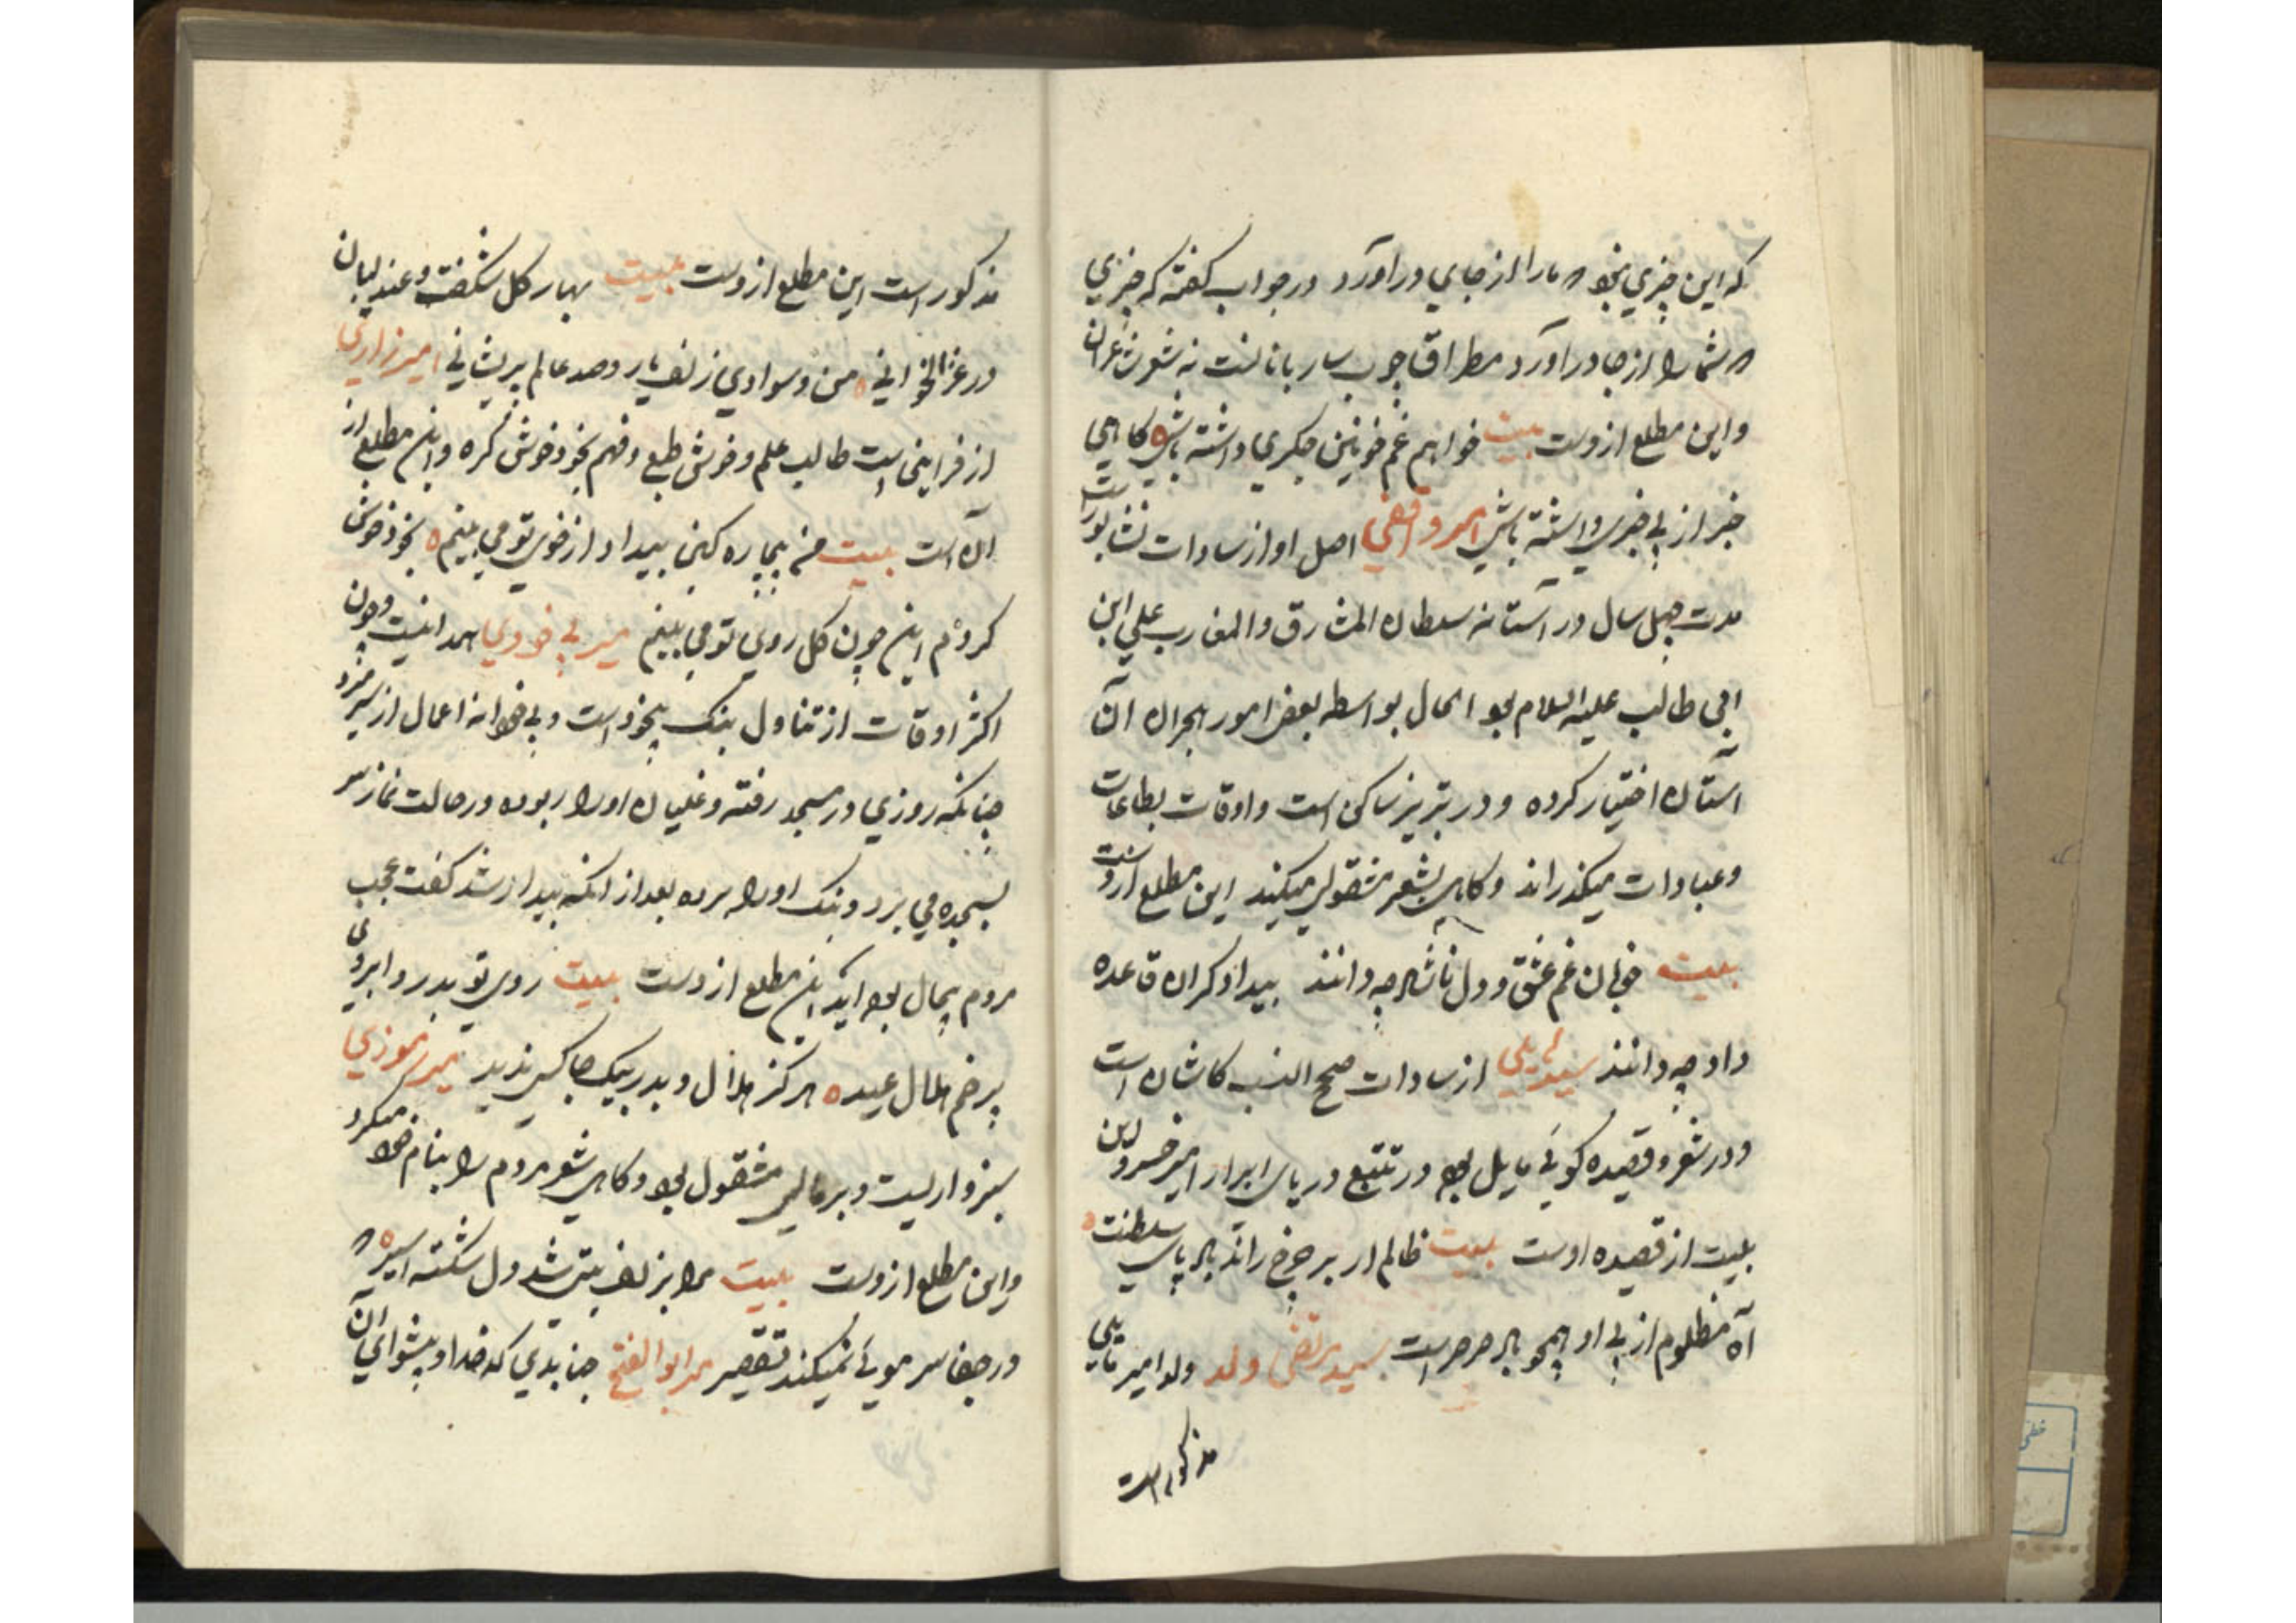 که این چیزی نبود که ما را از جای در آورد در جواب گفته که چیزی
که شما را از جا در آورد مطراق چوب ساربانانست نه شعر شاعران
واین مطلع ازوست بیت خواهم غم خونین جکری داشته باشی کاهی
خبر از بی خبری داشته باشی میر واقفی اصل او از سادات نشابورست
مدت چهل سال در آستانه سلطان المشارق والمغارب علی ابن
ابی طالب علیه السلام بود الحال بواسطه بعض امور هجران آن
آستان اختیار کرده و در تبریز ساکن است واوقات بطاعات
وعبادات میکذراند وکاهی بشعر مشقولی میکند این مطلع ازوست
بیت خوبان غم عشق و دل ناشاد چه دانند بیدادکران قاعده
داد چه دانند سید از سادات صحیح النسب کاشان است
ودر شعر وقصیده کوئی مایل بود در تتبع دریای ابرار امیر خسرو این
بیت از قصیده اوست بیت ظالم ار بر چرخ راند باد پای سلطنت
آه مظلوم از پی او همچو باد صرصرست سید مرتضی ولد ولد امیر
مذکور است
مذکور است این مطلع ازوست بیت بهار کل شکفت وعندلیبان
در غزلخوانی من وسوادی زلف یار وصد عالم پریشانی امیر زاری
از است طالب علم وخوش طبع وفهم بخود خوش کرده واین مطلع از
آن است بیت من بیچاره کین بیداد از خوی تو می بینم بخود خوش
کرده‌ام این چون کل روی تو می بینم میر بی خودی همدانیست وچون
اکثر اوقات از تناول بنک بیخود است وبی خودانه اعمال ازو سر میزد
چنانکه روزی در مسجد رفته وغلیان او را ربوده در حالت نماز سر
بسجده می برد وبنک او را می برده بعد از انکه بیدار شد کفت عجب
مردم بیحال بوده اید این مطلع ازوست بیت روی تو بدر و ابروی
پر خم هلال عید هرکز هلال و بدر بیک جا کس ندید میر رموزی
سبزواریست و مشقول بود وکاهی شعر مردم را بنام خود میکرد
واین مطلع ازوست بیت مرا بزلف بتی شد دل شکسته اسیر که
در جفا سر موئی نمیکند تقصیر میر ابوالفتح جنابدی کدخدا وپیشوای آن